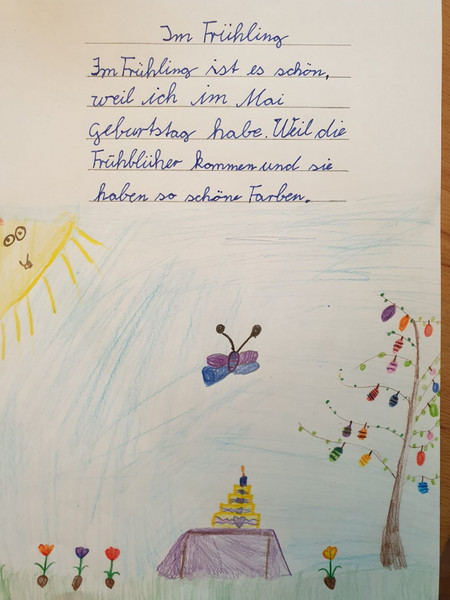 Im Frühling
Im Frühling ist es schön,
weil ich im Mai
geburtstag habe. Weil die
Frühblüher kommen und sie
haben so schöne Farben.